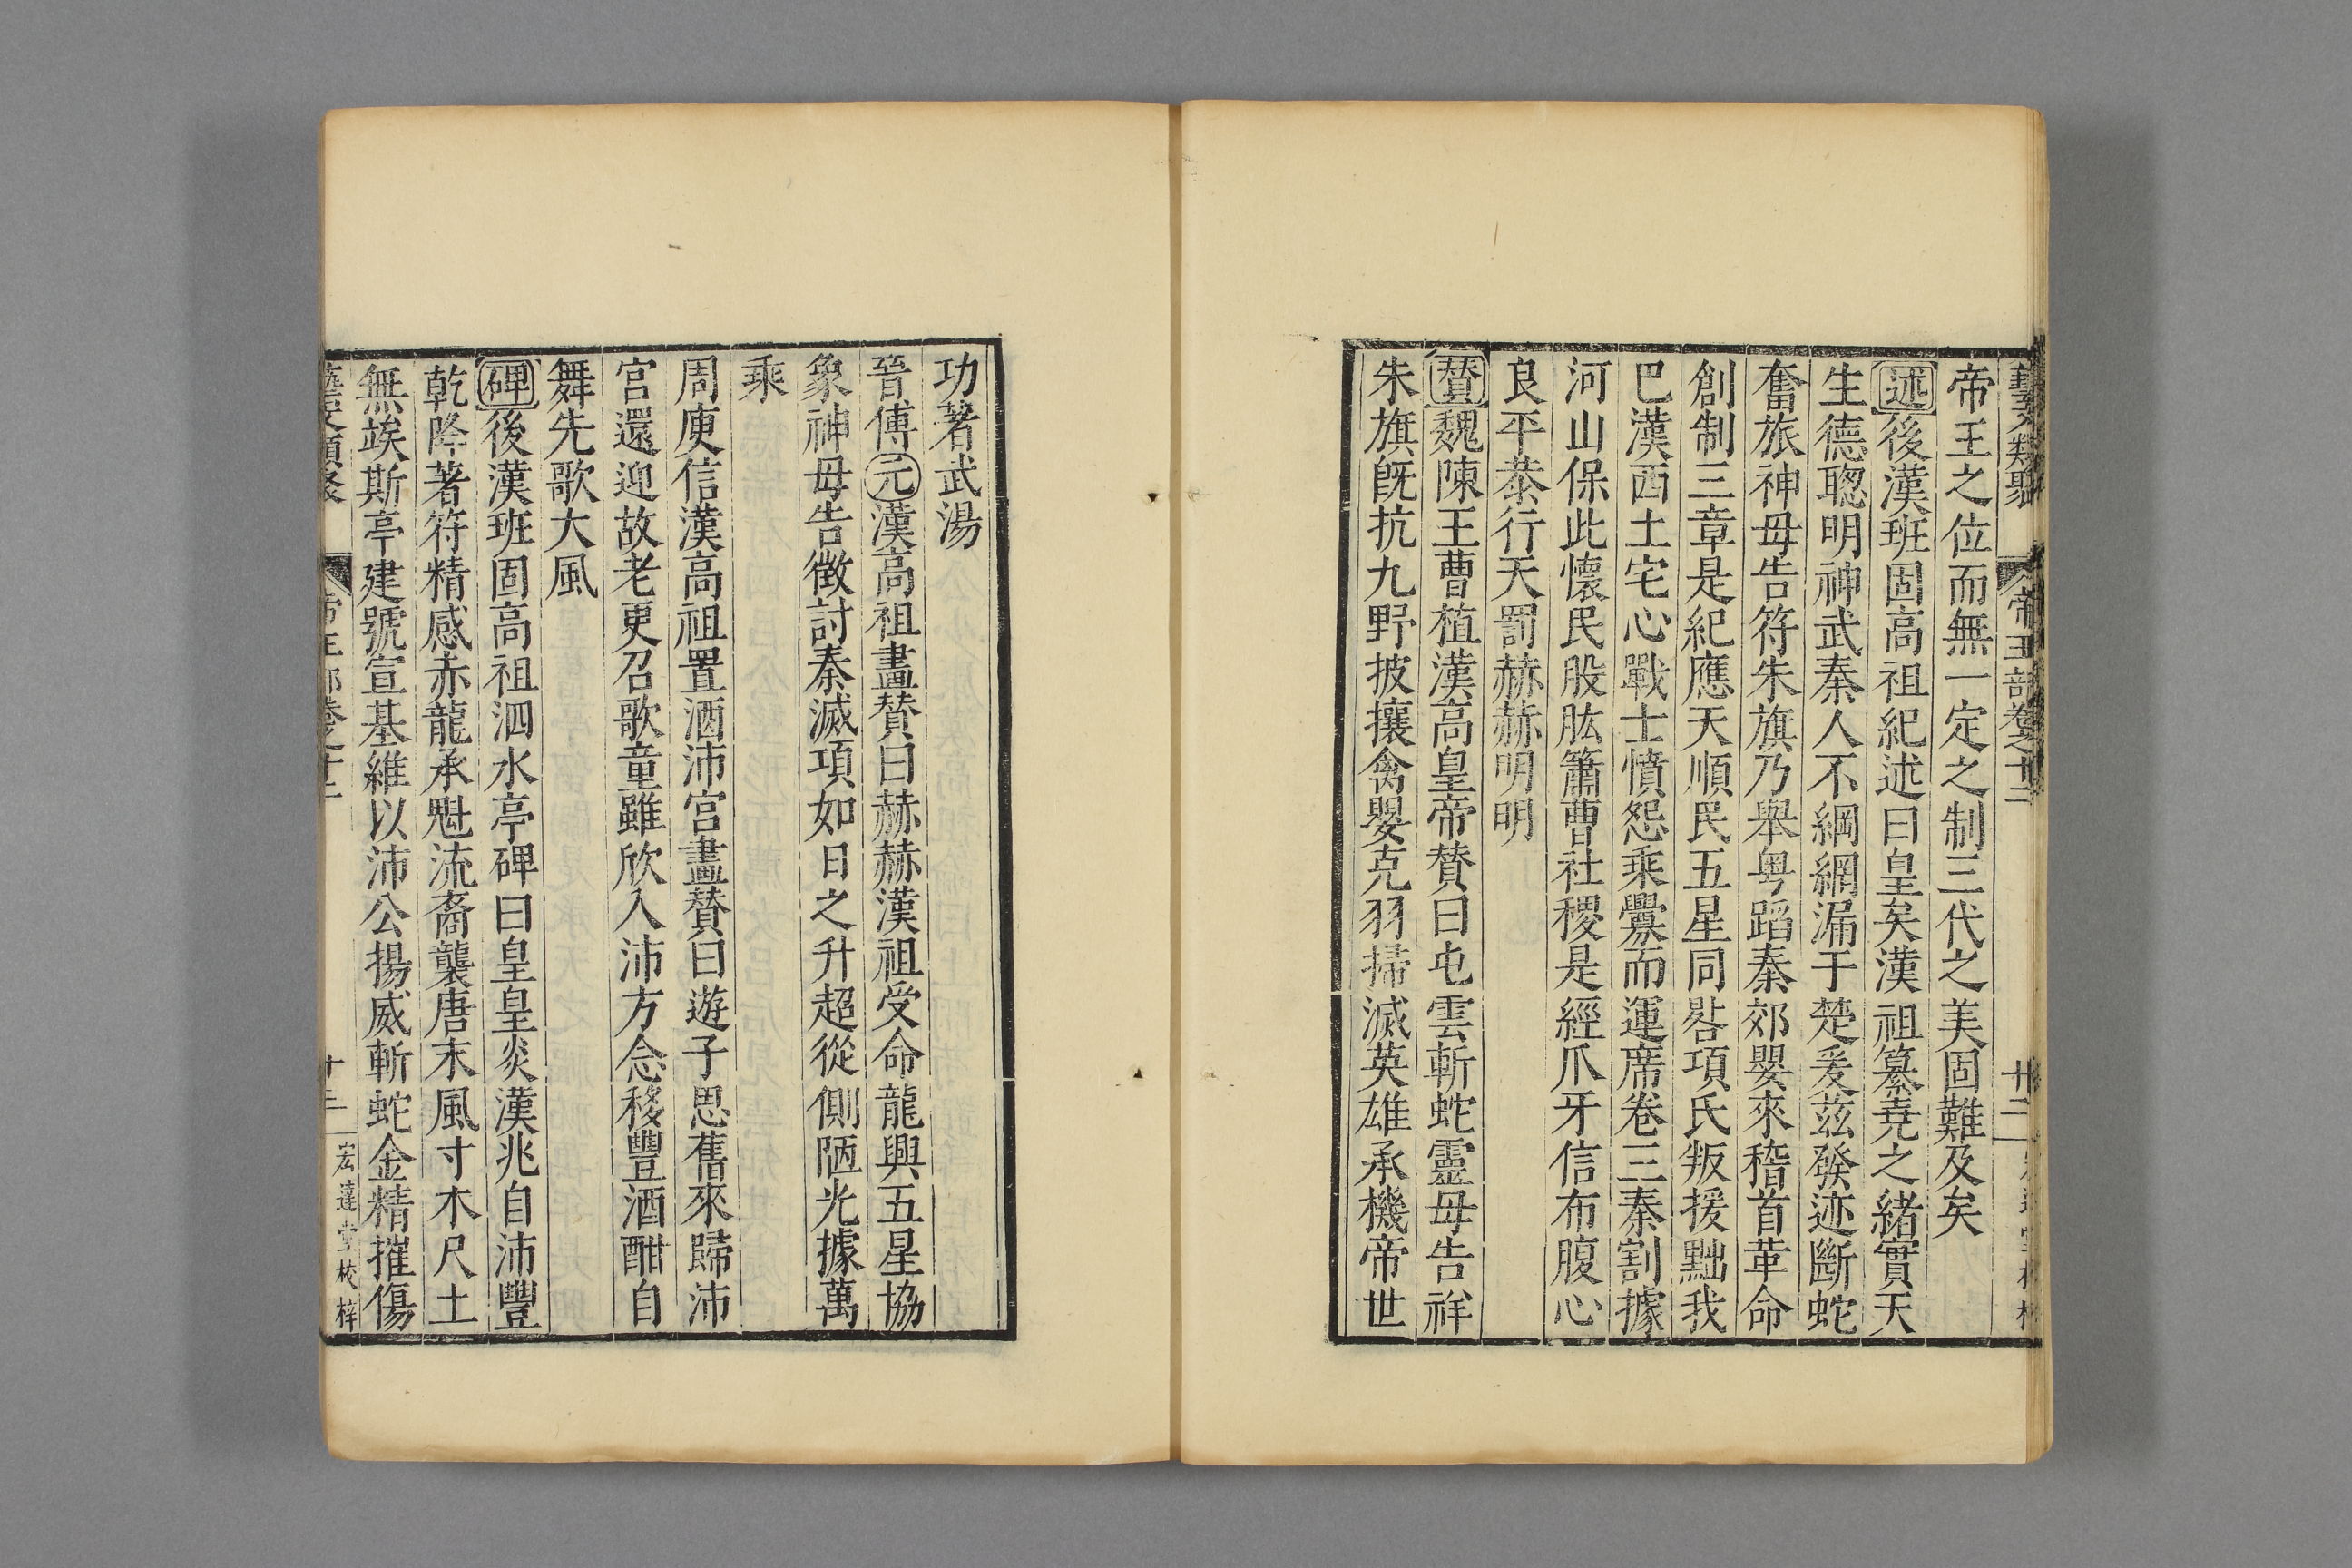 藝文類聚 帝王部卷之十二 十二
帝王之位而無一定之制三代之美固難及矣
述後漢班固高祖紀述曰皇矣漢祖纂堯之緒實天
生德聰明神武秦人不綱網漏于楚爰茲發迹斷蛇
奮旅神毋告符朱旗乃舉粤蹈秦郊嬰來稽首革命
創制三章是紀應天順民五星同晷項氏叛援黜我
巴漢西土宅心戰士憤怨乘釁而運席卷三秦割據
河山保此懷民股肱蕭曹社稷是經爪牙信布腹心
良平恭行天罰赫赫明明
贊魏陳王曹植漢高皇帝贊曰屯雲斬蛇靈毋告祥
朱旗既抗九野披攘禽嬰克羽掃滅英雄承機帝世
功著武湯
晉傅元漢高祖畫贊曰赫赫漢祖受命龍興五星協
象神毋告徴討秦滅項如日之升超從側陋光據萬
乘
周庾信漢高祖置酒沛宮畫贊曰遊子思舊來歸沛
宮還迎故老更召歌童雖欣入沛方念移豐酒酣自
舞先歌大風
碑後漢班固高祖泗水亭碑曰皇皇炎漢兆自沛豐
乾降著符精感赤龍承魁流裔襲唐末風寸木尺土
無竢斯亭建號宣基維以沛公揚威斬蛇金精摧傷
藝文類聚 帝王部卷之十二 十二 宏達堂校梓